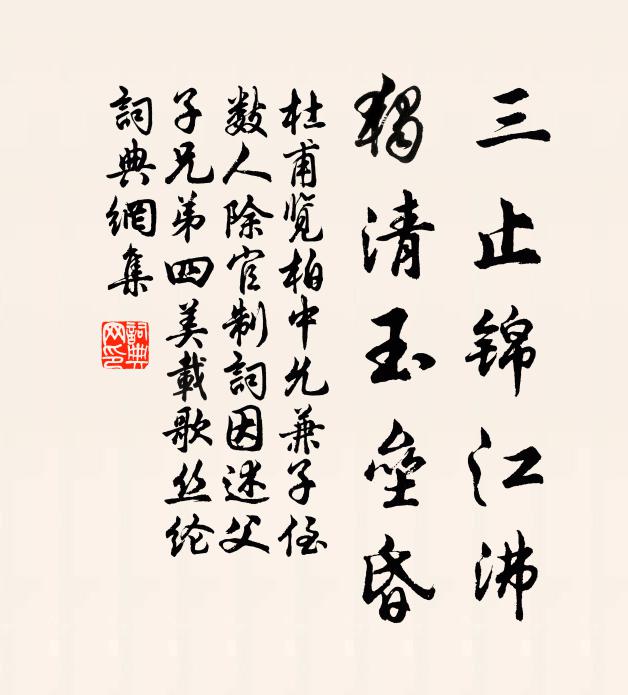 三止锦江沸
獨清玉壘昏
杜甫览柏中允兼子侄
数人除官制詞因述父
子兄弟四美載歌丝纶
詞典網集
詞典网印